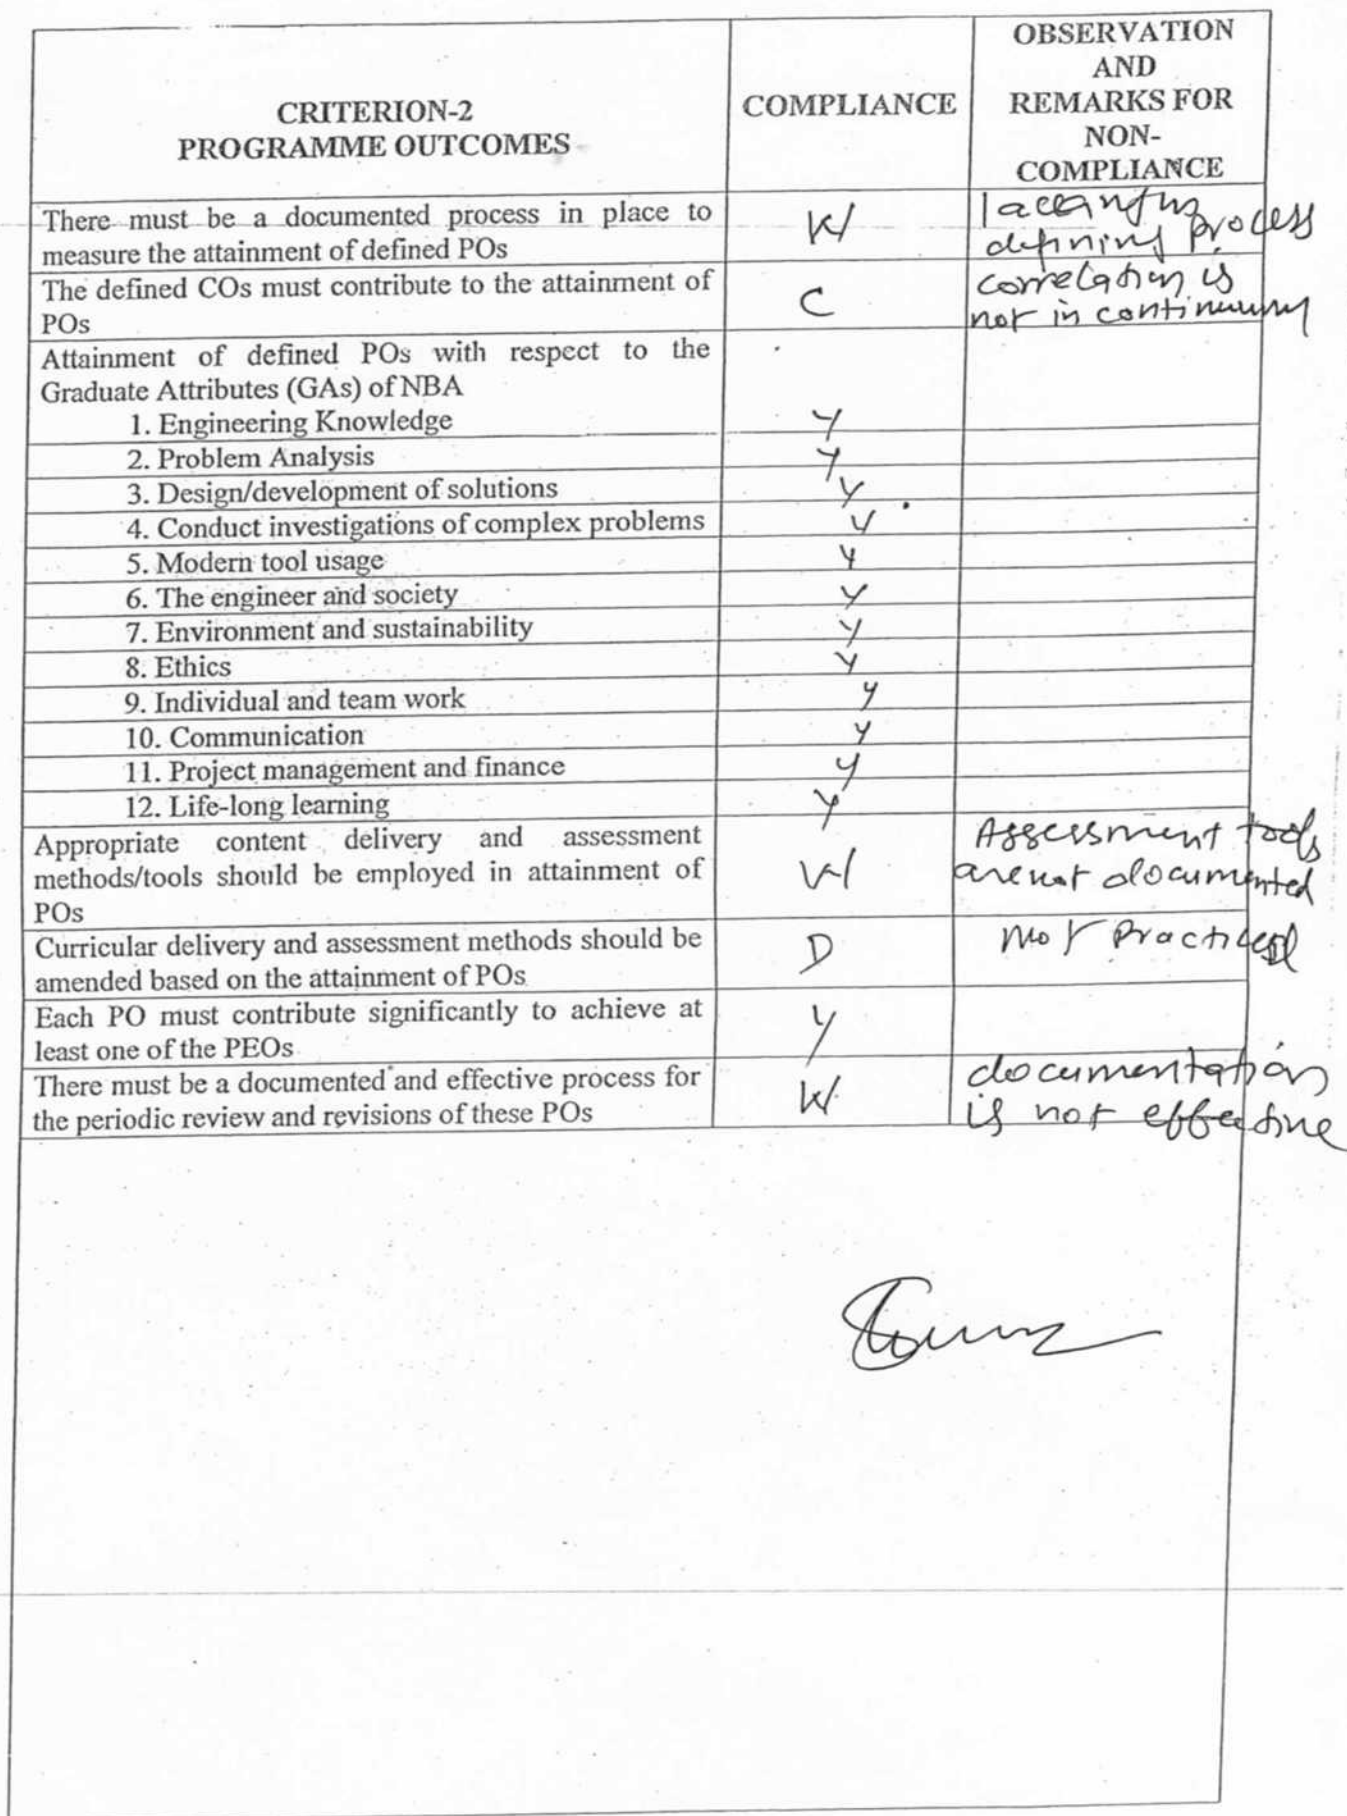 CRITERION-2
PROGRAMME OUTCOMES
COMPLIANCE
OBSERVATION
AND
REMARKS FOR
NON-
COMPLIANCE
There must be a documented process in place to
measure the attainment of defined POs
W
defining process
The defined COs must contribute to the attainment of
POs
C
correlation is
not in continuum
Attainment of defined POs with respect to the
Graduate Attributes (GAs) of NBA
1. Engineering Knowledge Y
2. Problem Analysis Y
3. Design/development of solutions Y
4. Conduct investigations of complex problems Y
5. Modern tool usage Y
6. The engineer and society Y
7. Environment and sustainability Y
8. Ethics Y
9. Individual and team work Y
10. Communication Y
11. Project management and finance Y
12. Life-long learning Y
Appropriate content delivery and assessment
methods/tools should be employed in attainment of
POs
W
Assessment tools
are not documented
Curricular delivery and assessment methods should be
amended based on the attainment of POs
D
Not Practiced
Each PO must contribute significantly to achieve at
least one of the PEOs
Y
There must be a documented and effective process for
the periodic review and revisions of these POs
W
documentation
is not effective